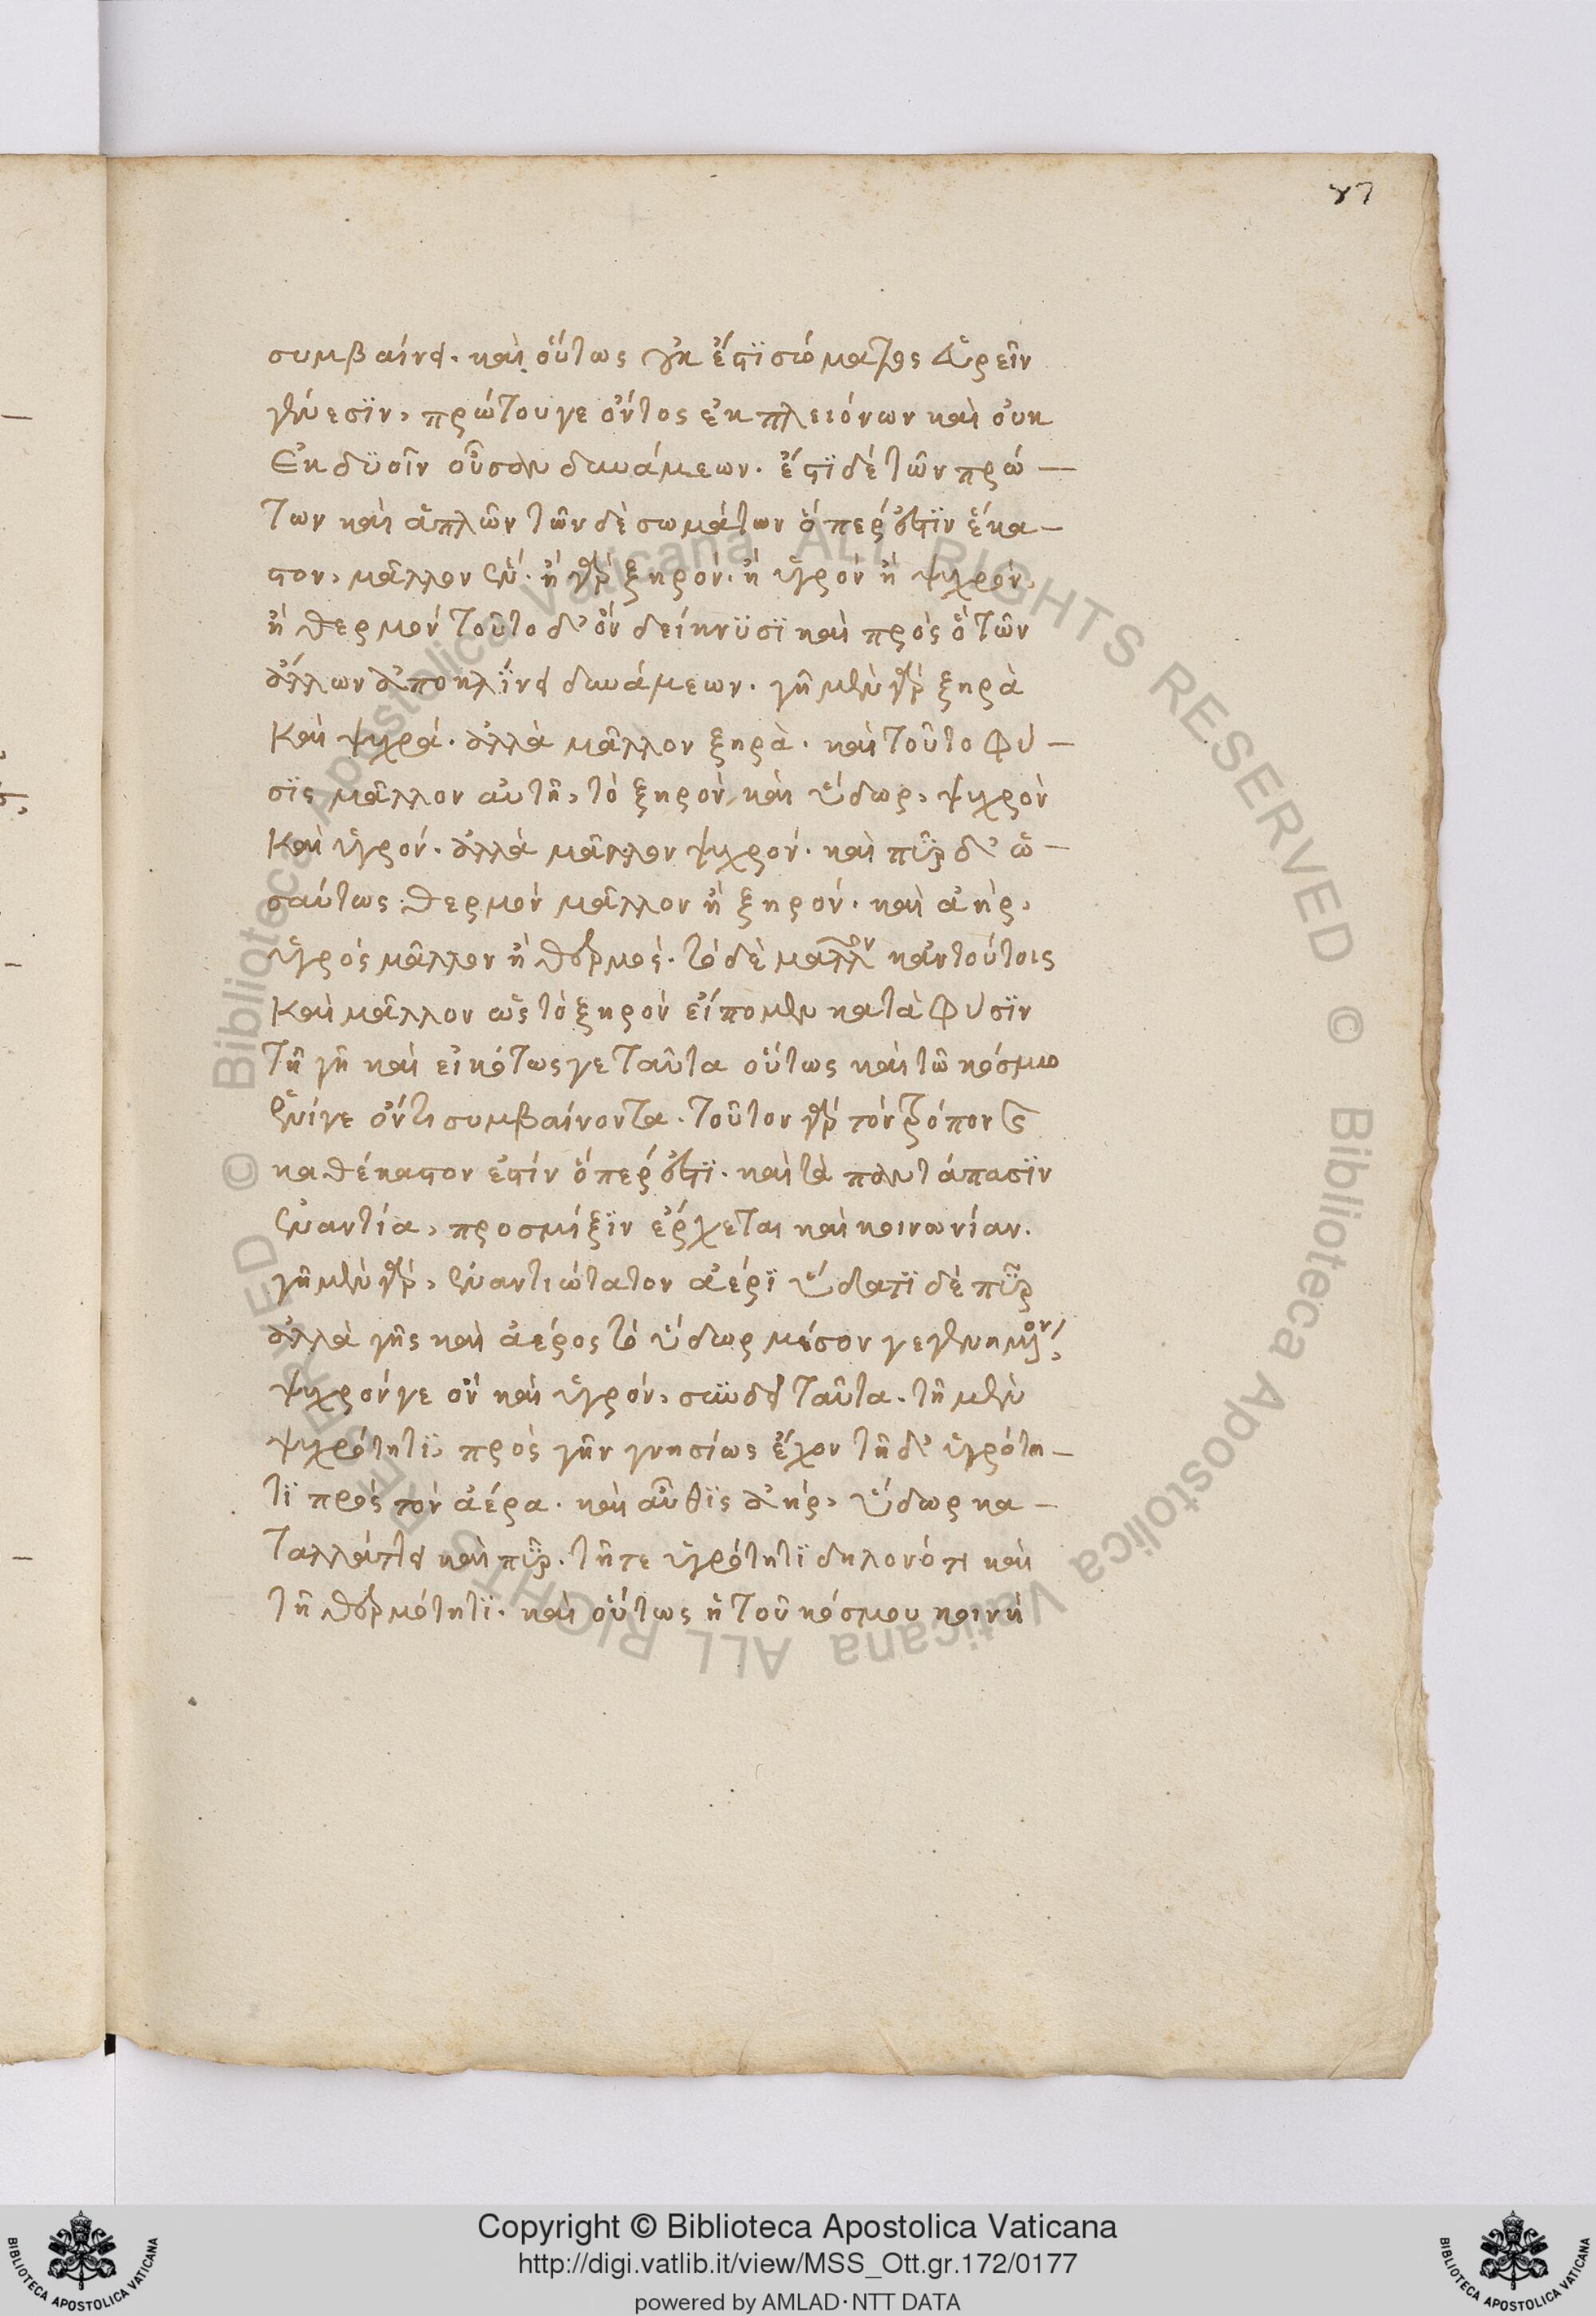 87
συμβαίνει. καὶ οὕτως οὐκ ἔστϊ σώματος εὑρεῖν
γένεσϊν, πρώτου γε ὄντος ἐκ πλειόνων καὶ οὐκ
Ἐκ δϋσῖν οὖσαν δυνάμεων. ἔστϊ δέ τῶν πρώ—
των καὶ ἁπλῶν τῶν δὲ σωμάτων ὅπερ ἐστϊν ἕκα—
στον, μᾶλλον ἕν. ἢ γὰρ ξηρόν. ἢ ὑγρὸν ἢ ψυχρόν,
ἢ θερμόν τοῦτο δ' ὂν δείκνϋσϊ καὶ πρὸς ὃ τῶν
ἄλλων ἀποκλίνει δυνάμεων. γῆ μὲν γὰρ ξηρὰ
Καὶ ψυχρά. ἀλλὰ μᾶλλον ξηρὰ. καὶ τοῦτο φύ—
σϊς μᾶλλον αὐτῆ, τὸ ξηρὸν, καὶ ὕδωρ, ψυχρὸν
Καὶ ὑγρόν. ἀλλὰ μᾶλλον ψυχρόν. καὶ πῦρ δ' ὡ—
σαύτως θερμὸν μᾶλλον ἢ ξηρόν. καὶ ἀὴρ,
ὑγρὸς μᾶλλον ἢ θερμός. τὸ δὲ μᾶλλον κἀν τούτοις
Καὶ μᾶλλον ὡς τὸ ξηρὸν εἴπομεν κατὰ φύσϊν
Τῆ γῆ καὶ εἰκότως γε ταῦτα οὕτως καὶ τῶ κόσμω
ἑνί γε ὄντι συμβαίνοντα. τοῦτον γὰρ τὸν τρόπον
καθέκαστον ἐστίν ὅπερ ἐστϊ. καὶ τὰ παντάπασϊν
ἐναντία, προσμίξϊν ἔρχεται καὶ κοινωνίαν.
γῆ μὲν γὰρ, ἐναντιώτατον ἀέρϊ ὕδατϊ δὲ πῦρ
ἀλλὰ γῆς καὶ ἀέρος τὸ ὕδωρ μέσον γεγενημένον,
ψυχρόν γε ὂν καὶ ὑγρόν, συνδεῖ ταῦτα. τῆ μὲν
ψυχρότητϊ, πρὸς γῆν γνησίως ἔχον τῆ δ' ὑγρότη—
τϊ πρὸς τὸν ἀέρα. καὶ αὖθϊς ἀὴρ, ὕδωρ κα—
ταλλάττει καὶ πῦρ. τῆ τε ὑγρότητϊ δηλονότι καὶ
τῆ θερμότητϊ. καὶ οὕτως ἡ τοῦ κόσμου κοινὴ
© Biblioteca Apostolica Vaticana ALL RIGHTS RESERVED © Biblioteca Apostolica Vaticana ALL RIGHTS RESERVED
Copyright © Biblioteca Apostolica Vaticana
http://digi.vatlib.it/view/MSS_Ott.gr.172/0177
powered by AMLAD·NTT DATA
BIBLIOTECA APOSTOLICA VATICANA
BIBLIOTECA APOSTOLICA VATICANA